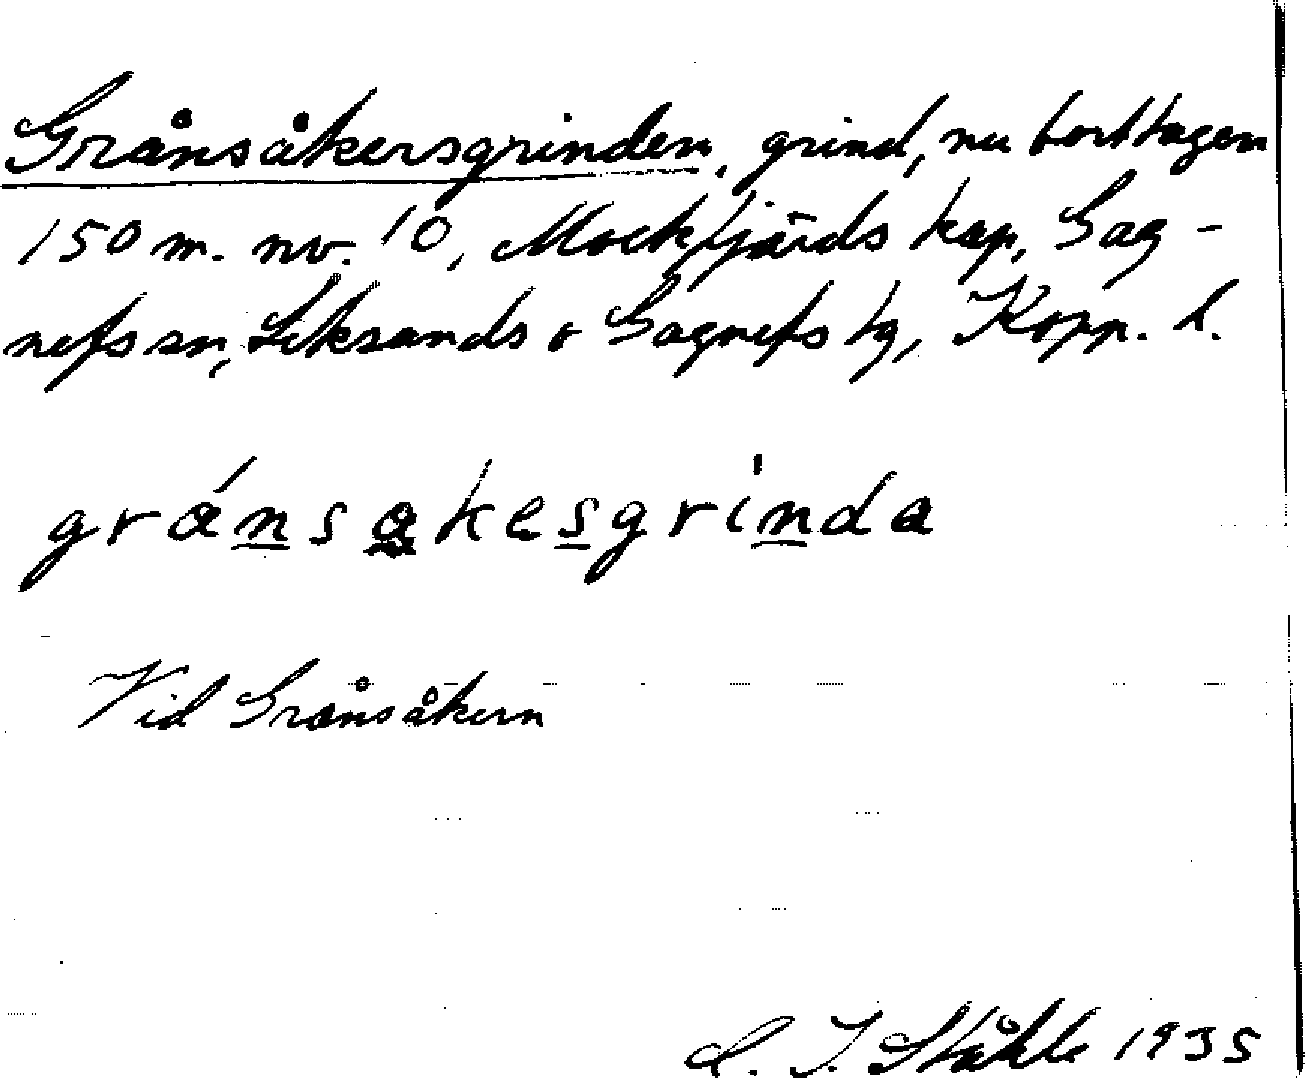 Grånsåkersgrinden, grind, nu borttagen
150 m. nv. 10, Mockfjärds kap, Gag-
nefs sn, Leksands o Gagnefs tg, Kopp. l.
gránsakesgrinda
Vid Grånsåkern
C. I. Ståhle 1935